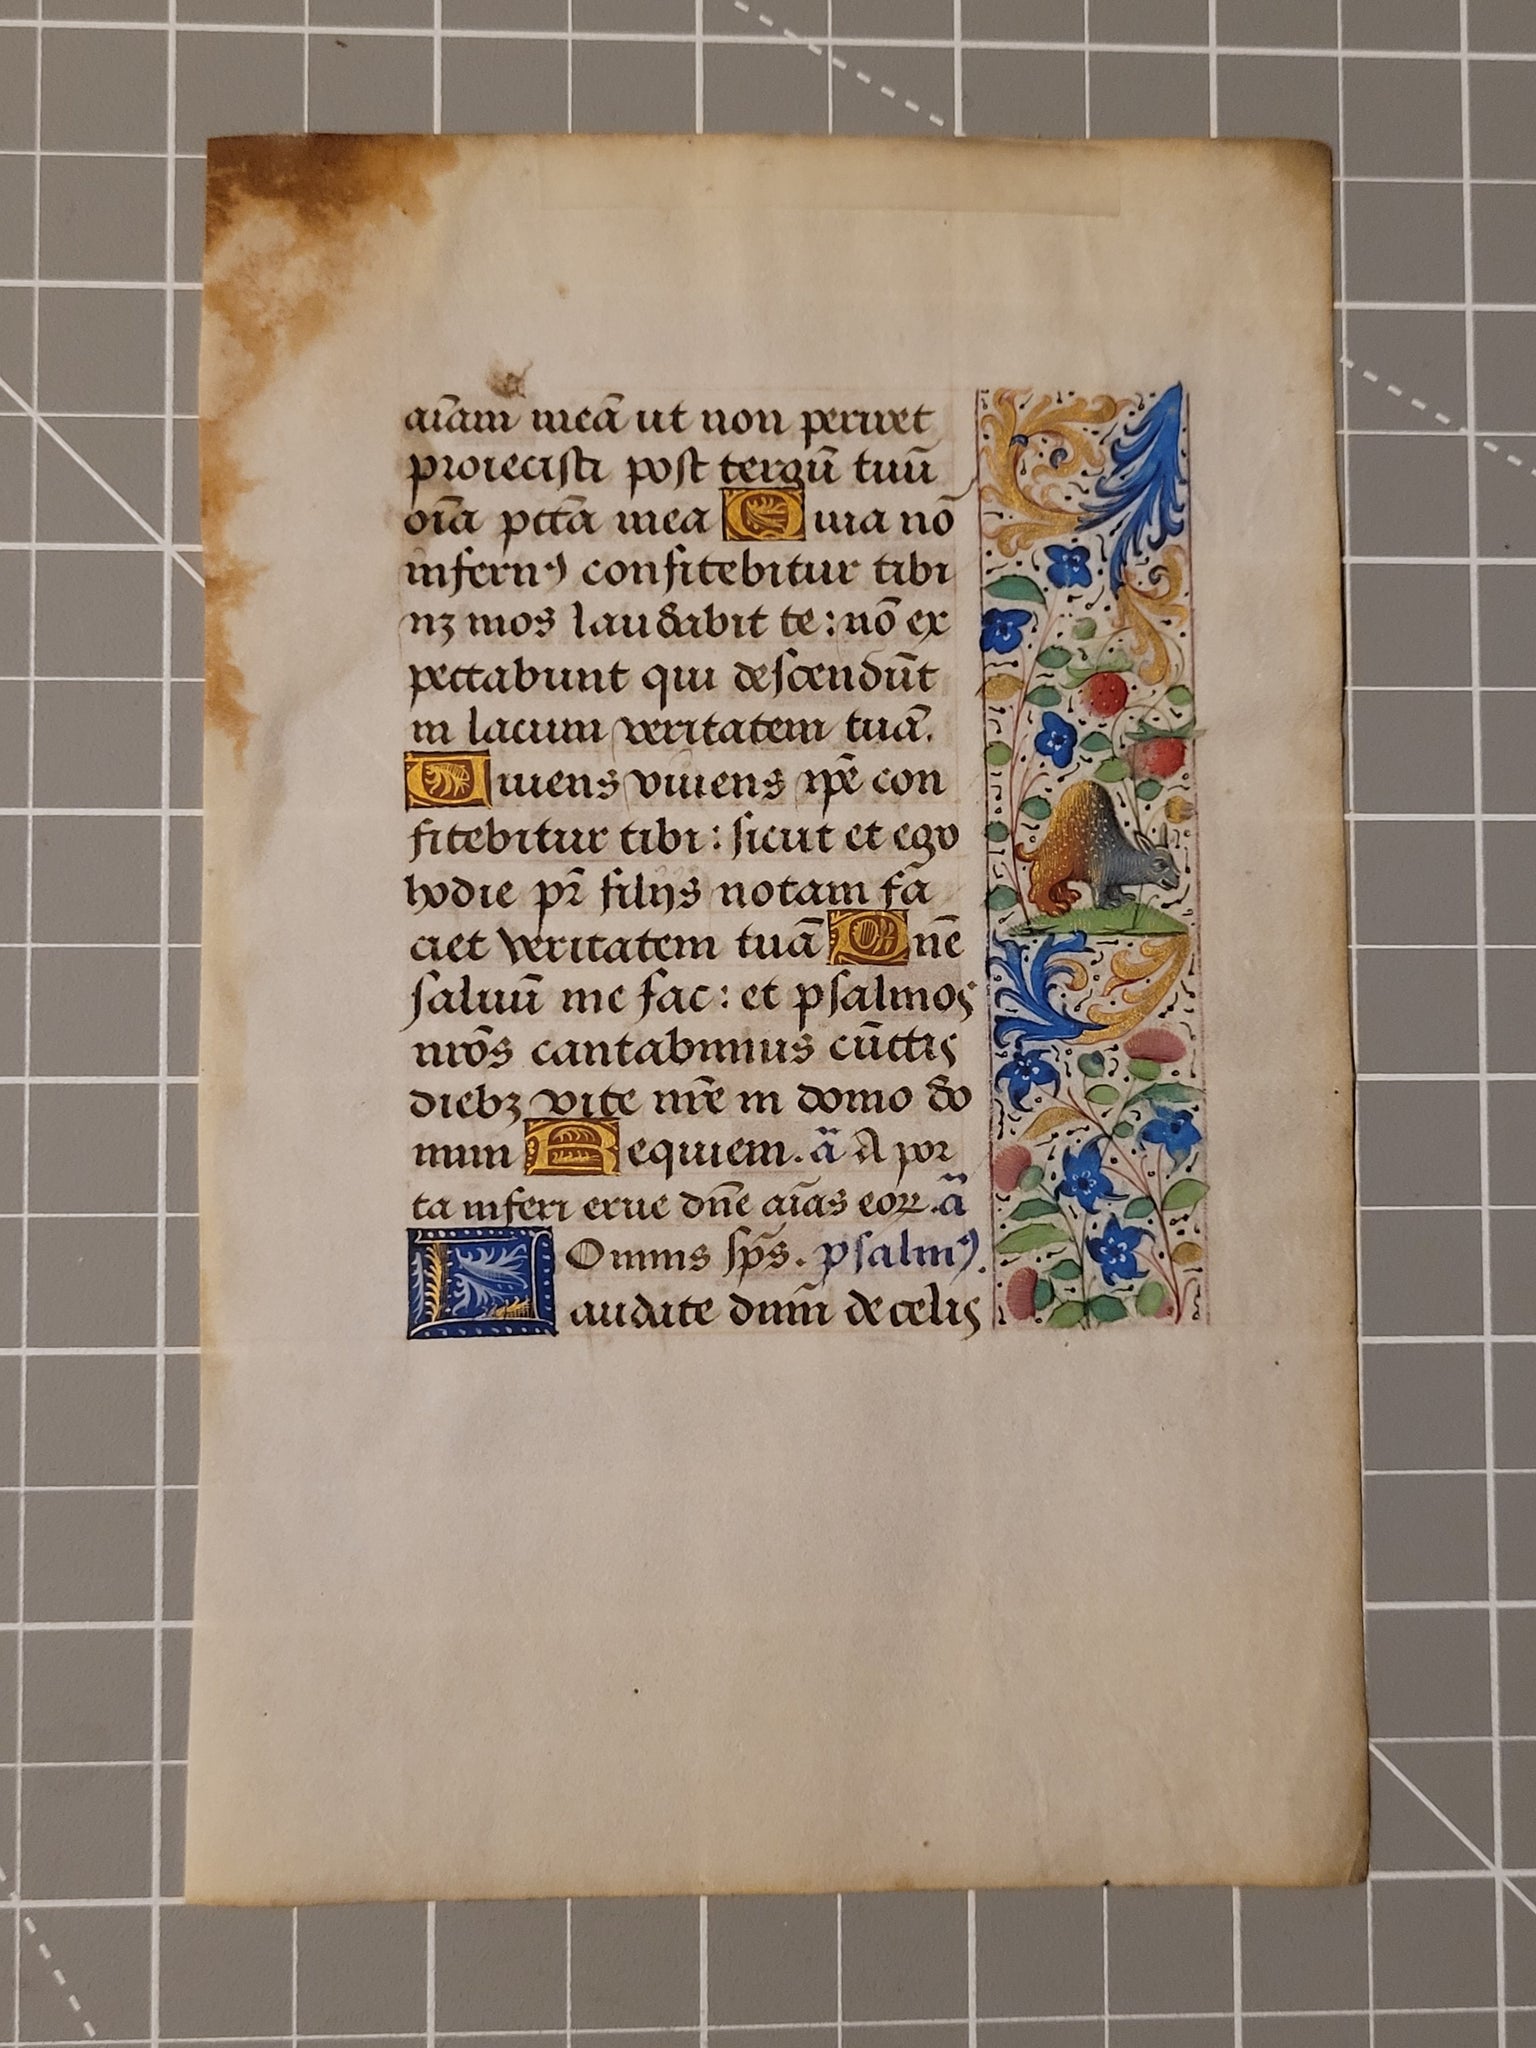 aīam meā ut non periret
proiecisti post tergū tuū
oīa pctā mea Quia nō
infernꝰ confitebitur tibi
nꝫ mors laudabit te: nō ex
pectabunt qui descendūt
in lacum veritatem tuā.
Viuens viuens ip̄e con
fitebitur tibi: sicut et ego
hodie pr̄ filijs notam fa
ciet veritatem tuā Dn̄e
saluū me fac: et psalmos
nr̄os cantabimus cūctis
diebꝫ vite nr̄e in domo do
mini Requiem. ā A por
ta inferi erue dn̄e aīas eoꝝ. ā
Omnis sp̄s. psalmꝰ.
Laudate dn̄m de celis